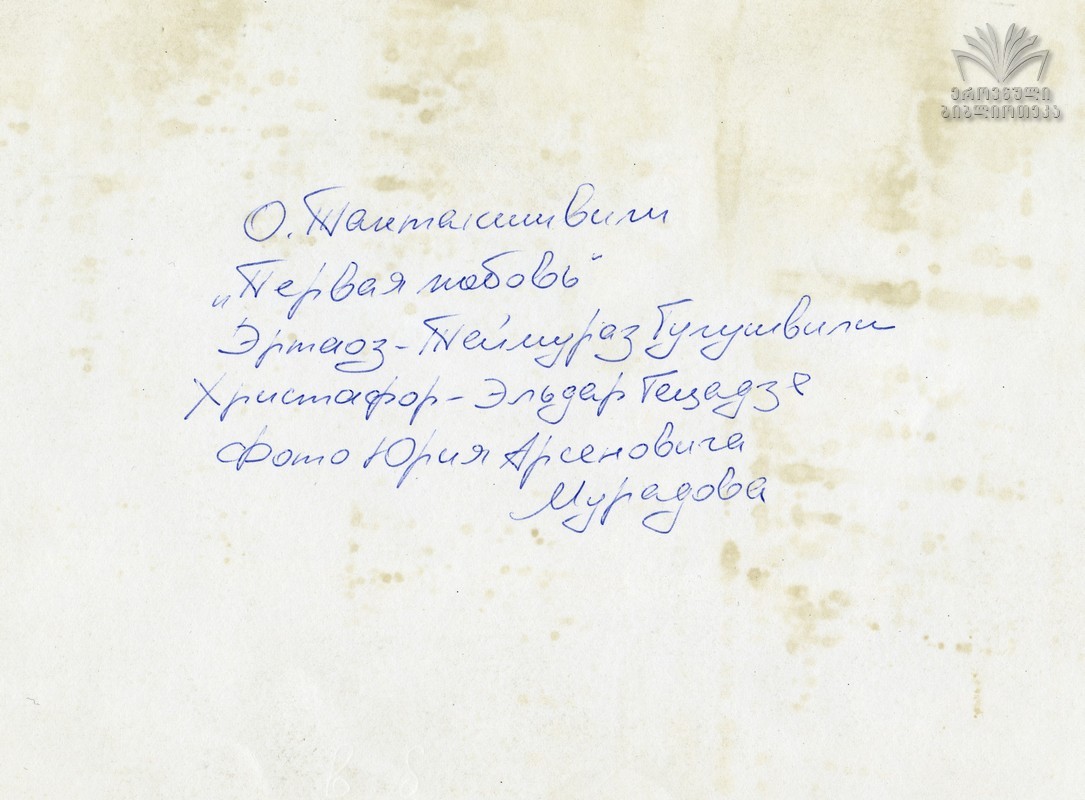 ეროვნული
ბიბლიოთეკა
О. Тактакишвили
„Первая любовь“
Эртаоз - Теймураз Гугушвили
Христафор - Эльдар Гецадзе
Фото Юрия Арсеновича
Мурадова